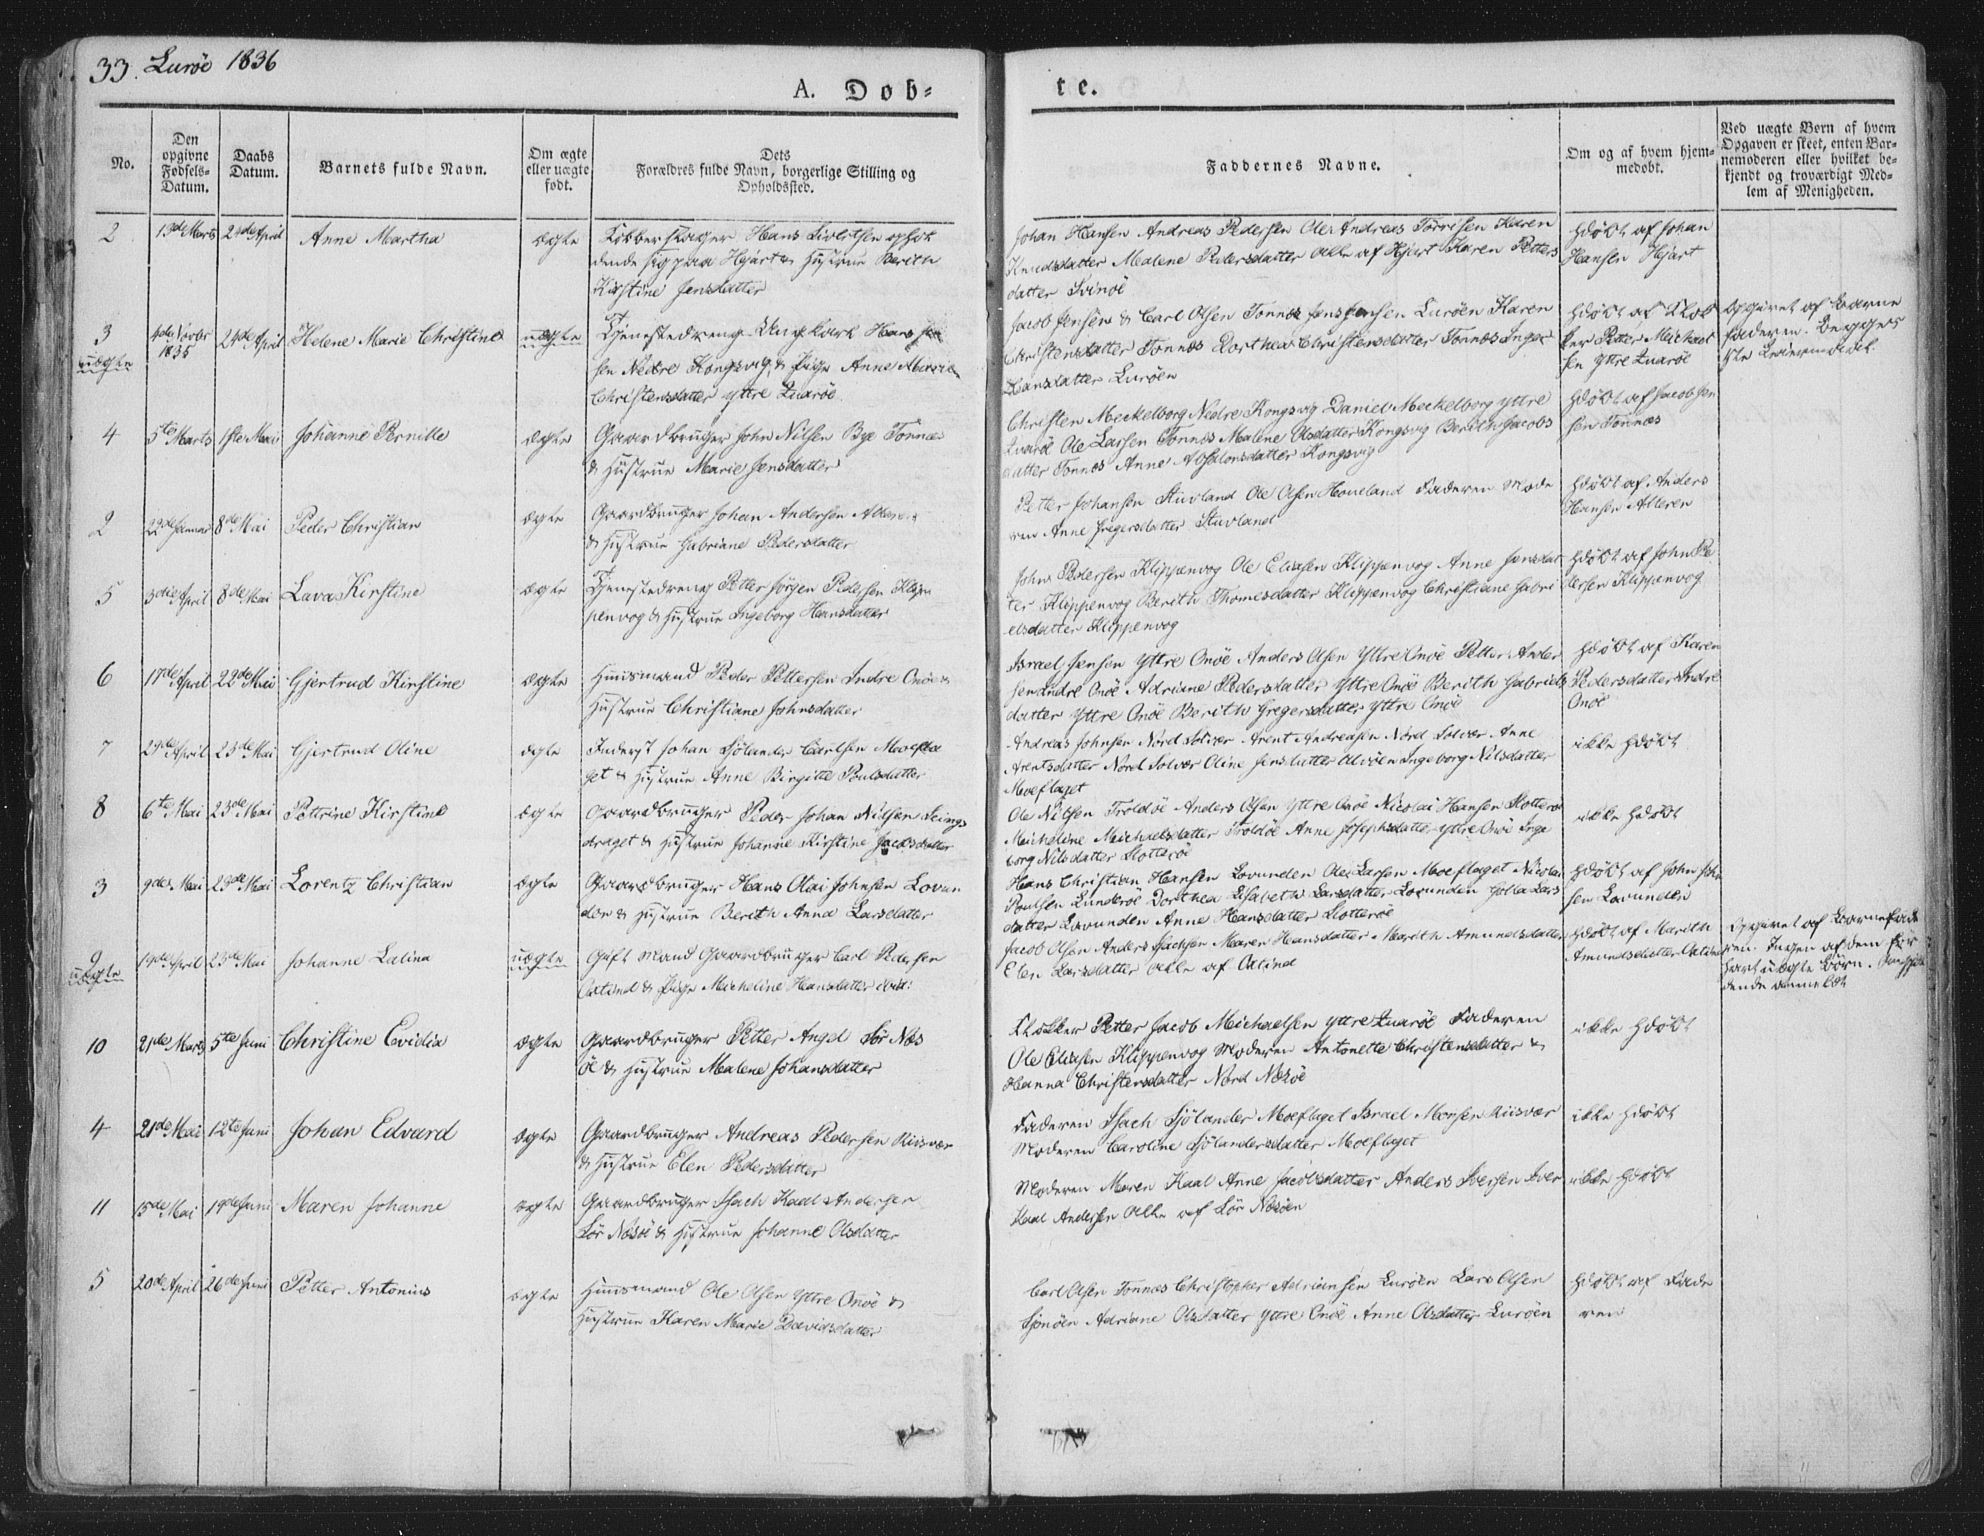 33. Lurøe 1836
A. Døb-
te.
No.
Den opgivne Fødsels-Datum.
Daabs Datum.
Barnets fulde Navn.
Om ægte eller uægte født.
Dets Forældres fulde Navn, borgerlige Stilling og Opholdssted.
Faddernes Navne.
Om og af hvem hjem-medøbt.
Ved uægte Børn af hvem Opgaven er skeet, enten Bar-nemoderen eller hvilket be-kjendt og troværdigt Med-lem af Menigheden.
2 13de Marts 24de April Anne Martha ægte
Hans ophol
dende sig paa Hjart & Hustrue Berith
Kirstine Jensdatter
Johan Hansen Andreas Pedersen Ole Andreas Karen
Knudsdatter Malene Pedersdatter Alle af Hjart Karen Petters
datter Svinøe
Hdøbt af Johan
Hansen Hjart
3 uægte 4de Novbr 1835 24de April Helene Marie Christine uægte
Tjenestedreng Ungkarl Hans
sen Nedre Kongsvig & Pige Anne Marie
Christensdatter Yttre Qvarøe
Jacob Jensen & Carl Olsen Tonnes Jens Jensen Lurøen Karen
Christensdatter Tonnes Dorthea Christensdatter Tonnes Inger
Hansdatter Lurøen
Hdøbt af Klok
ker Petter Michael
sen Yttre Qvarøe
Opgivet af Barne
faderen. Begges
1ste Leiermaal.
4 5te Marts 1ste Mai Johanne Pernille ægte
Gaardbruger John Nilsen Bye Tonnes
& Hustrue Marie Jensdatter
Christen Meckelborg Nedre Kongsvig Daniel Meckelborg Yttre
Qvarøe Ole Larsen Tonnes Malene Olsdatter Kongsvig Berith Jacobs
datter Tonnes Anne Absalonsdatter Kongsvig
Hdøbt af Jacob Jen
sen Tonnes
2 22de Januar 8de Mai Peder Christian ægte
Gaardbruger Johan Andersen
& Hustrue Gabriane Pedersdatter
Petter Johansen Stuvland Ole Olsen Houeland Faderen Mode
ren Anne Gregersdatter Stuvland
Hdøbt af Anders
Hansen Alteren
5 3die April 8de Mai Lava Kirstine ægte
Tjenestedreng Petter Jørgen Pedersen Klip
penvog & Hustrue Ingeborg Hansdatter
John Pedersen Klippenvog Ole Eliasen Klippenvog Anne Jensdat
ter Klippenvog Berith Thomesdatter Klippenvog Christiane Gabri
elsdatter Klippenvog
Hdøbt af John Pe
dersen Klippenvog
6 17de April 22de Mai Gjertrud Kirstine ægte
Huusmand Peder Pettersen Indre Onøe &
Hustrue Christiane Johnsdatter
Israel Jensen Yttre Onøe Anders Olsen Yttre Onøe Petter Ander
sen Indre Onøe Adriane Pedersdatter Yttre Onøe Berith Gabriels
datter Yttre Onøe Berith Gregersdatter Yttre Onøe
Hdøbt af Karen
Pedersdatter Indre
Onøe
7 29de April 23de Mai Gjertrud Oline ægte
Inderst Johan Sjølander Carlsen Moefla
get & Hustrue Anne Birgitte Poulsdatter
Andreas Johnsen Nord Solvær Arent Andreasen Nord Solvær Anne
Arentsdatter Nord Solvær Oline Jensdatter Ingeborg Nilsdatter
Moeflaget
ikke Hdøbt
8 6te Mai 23de Mai Pettrine Kirstine ægte
Gaardbruger Peder Johan Nilsen Selings
draget & Hustrue Johanne Kirstine Jacobsdatter
Ole Nilsen Troldøe Anders Olsen Yttre Onøe Nicolai Hansen Slotterøe
Micheline Michaelsdatter Troldøe Anne Josephsdatter Yttre Onøe Inge
borg Nilsdatter Slotterøe
ikke Hdøbt
3 9de Mai 23de Mai Lorentz Christian ægte
Gaardbruger Hans Olai Johnsen Lovun
den & Hustrue Berith Anna Larsdatter
Hans Christian Hansen Lovunden Ole Larsen Moeflaget Nicolai
Poulsen Lunderøe Dorthea Elisabeth Larsdatter Lovunden Lars
datter Lovunden Anne Hansdatter Slotterøe
Hdøbt af John
sen Lovunden
9 uægte 19de April 23de Mai Johanne Lalina uægte
Gift Mand Gaardbruger Carl Pedersen
& Pige Micheline Hansdatter ibid:
Jacob Olsen Anders Isachsen Maren Hansdatter Marith Amundsdatter
Elen Larsdatter Alle af
Hdøbt af Marith
Amundsdatter
Opgivet af Barnefade
ren. Ingen af dem før
havt uægte Børn.
10 21de Marts 5te Juni Christine Evidia ægte
Gaardbruger Petter Angel Sør Næs
øe & Hustrue Malene Johansdatter
Klokker Petter Jacob Michaelsen Yttre Qvarøe Faderen
Ole Eliasen Klippenvog Moderen Antonette Christensdatter &
Hanna Christensdatter Nord Næsøe
ikke Hdøbt
4 21de Mai 12te Juni Johan Edvard ægte
Gaardbruger Andreas Pedersen Riisvær
& Hustrue Elen Pedersdatter
Faderen Isach Sjølander Moeflaget Israel Monsen Riisvær
Moderen Caroline Sjølandersdatter Moeflaget
ikke Hdøbt
11 15de Mai 19de Juni Maren Johanne ægte
Gaardbruger Isach Kaal Andersen
Sør Næsøe & Hustrue Johanne Olsdatter
Moderen Maren Kaal Anne Jacobsdatter Anders Iversen Iver
Kaal Andersen Alle af Sør Næsøen
ikke Hdøbt
5 20de April 26de Juni Petter Antonius ægte
Huusmand Ole Olsen Yttre Onøe &
Hustrue Karen Marie Davidsdatter
Carl Olsen Tonnes Christopher Adriansen Lurøen Lars Olsen
Sjonøen Adriane Olsdatter Yttre Onøe Anne Olsdatter Lurøen
Hdøbt af Fade
ren